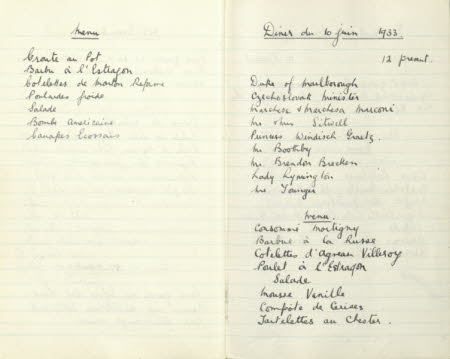 Menu
Croute au Pot
Barbue à l'Estragon
Cotelettes de Mouton Réforme
Poulardes froide
Salade
Bombe Américaine
Canapes Ecossais
Diner du 10 juin 1933
12 present.
Duke of Marlborough
Czechoslovak Minister
Marchese & Marchesa Marconi
Mr & Mrs Sitwell
Princess Windisch Graetz.
Mr Boothby
Mr. Brendon Bracken
Lady Lymington
Mr. Younger
Menu.
Consommé
Barbue à la Russe
Cotelettes d'Agneau Villeroy
Poulet à l'Estragon
Salade
Mousse Vanille
Compôte de Cerises
Tartelettes au Chester.